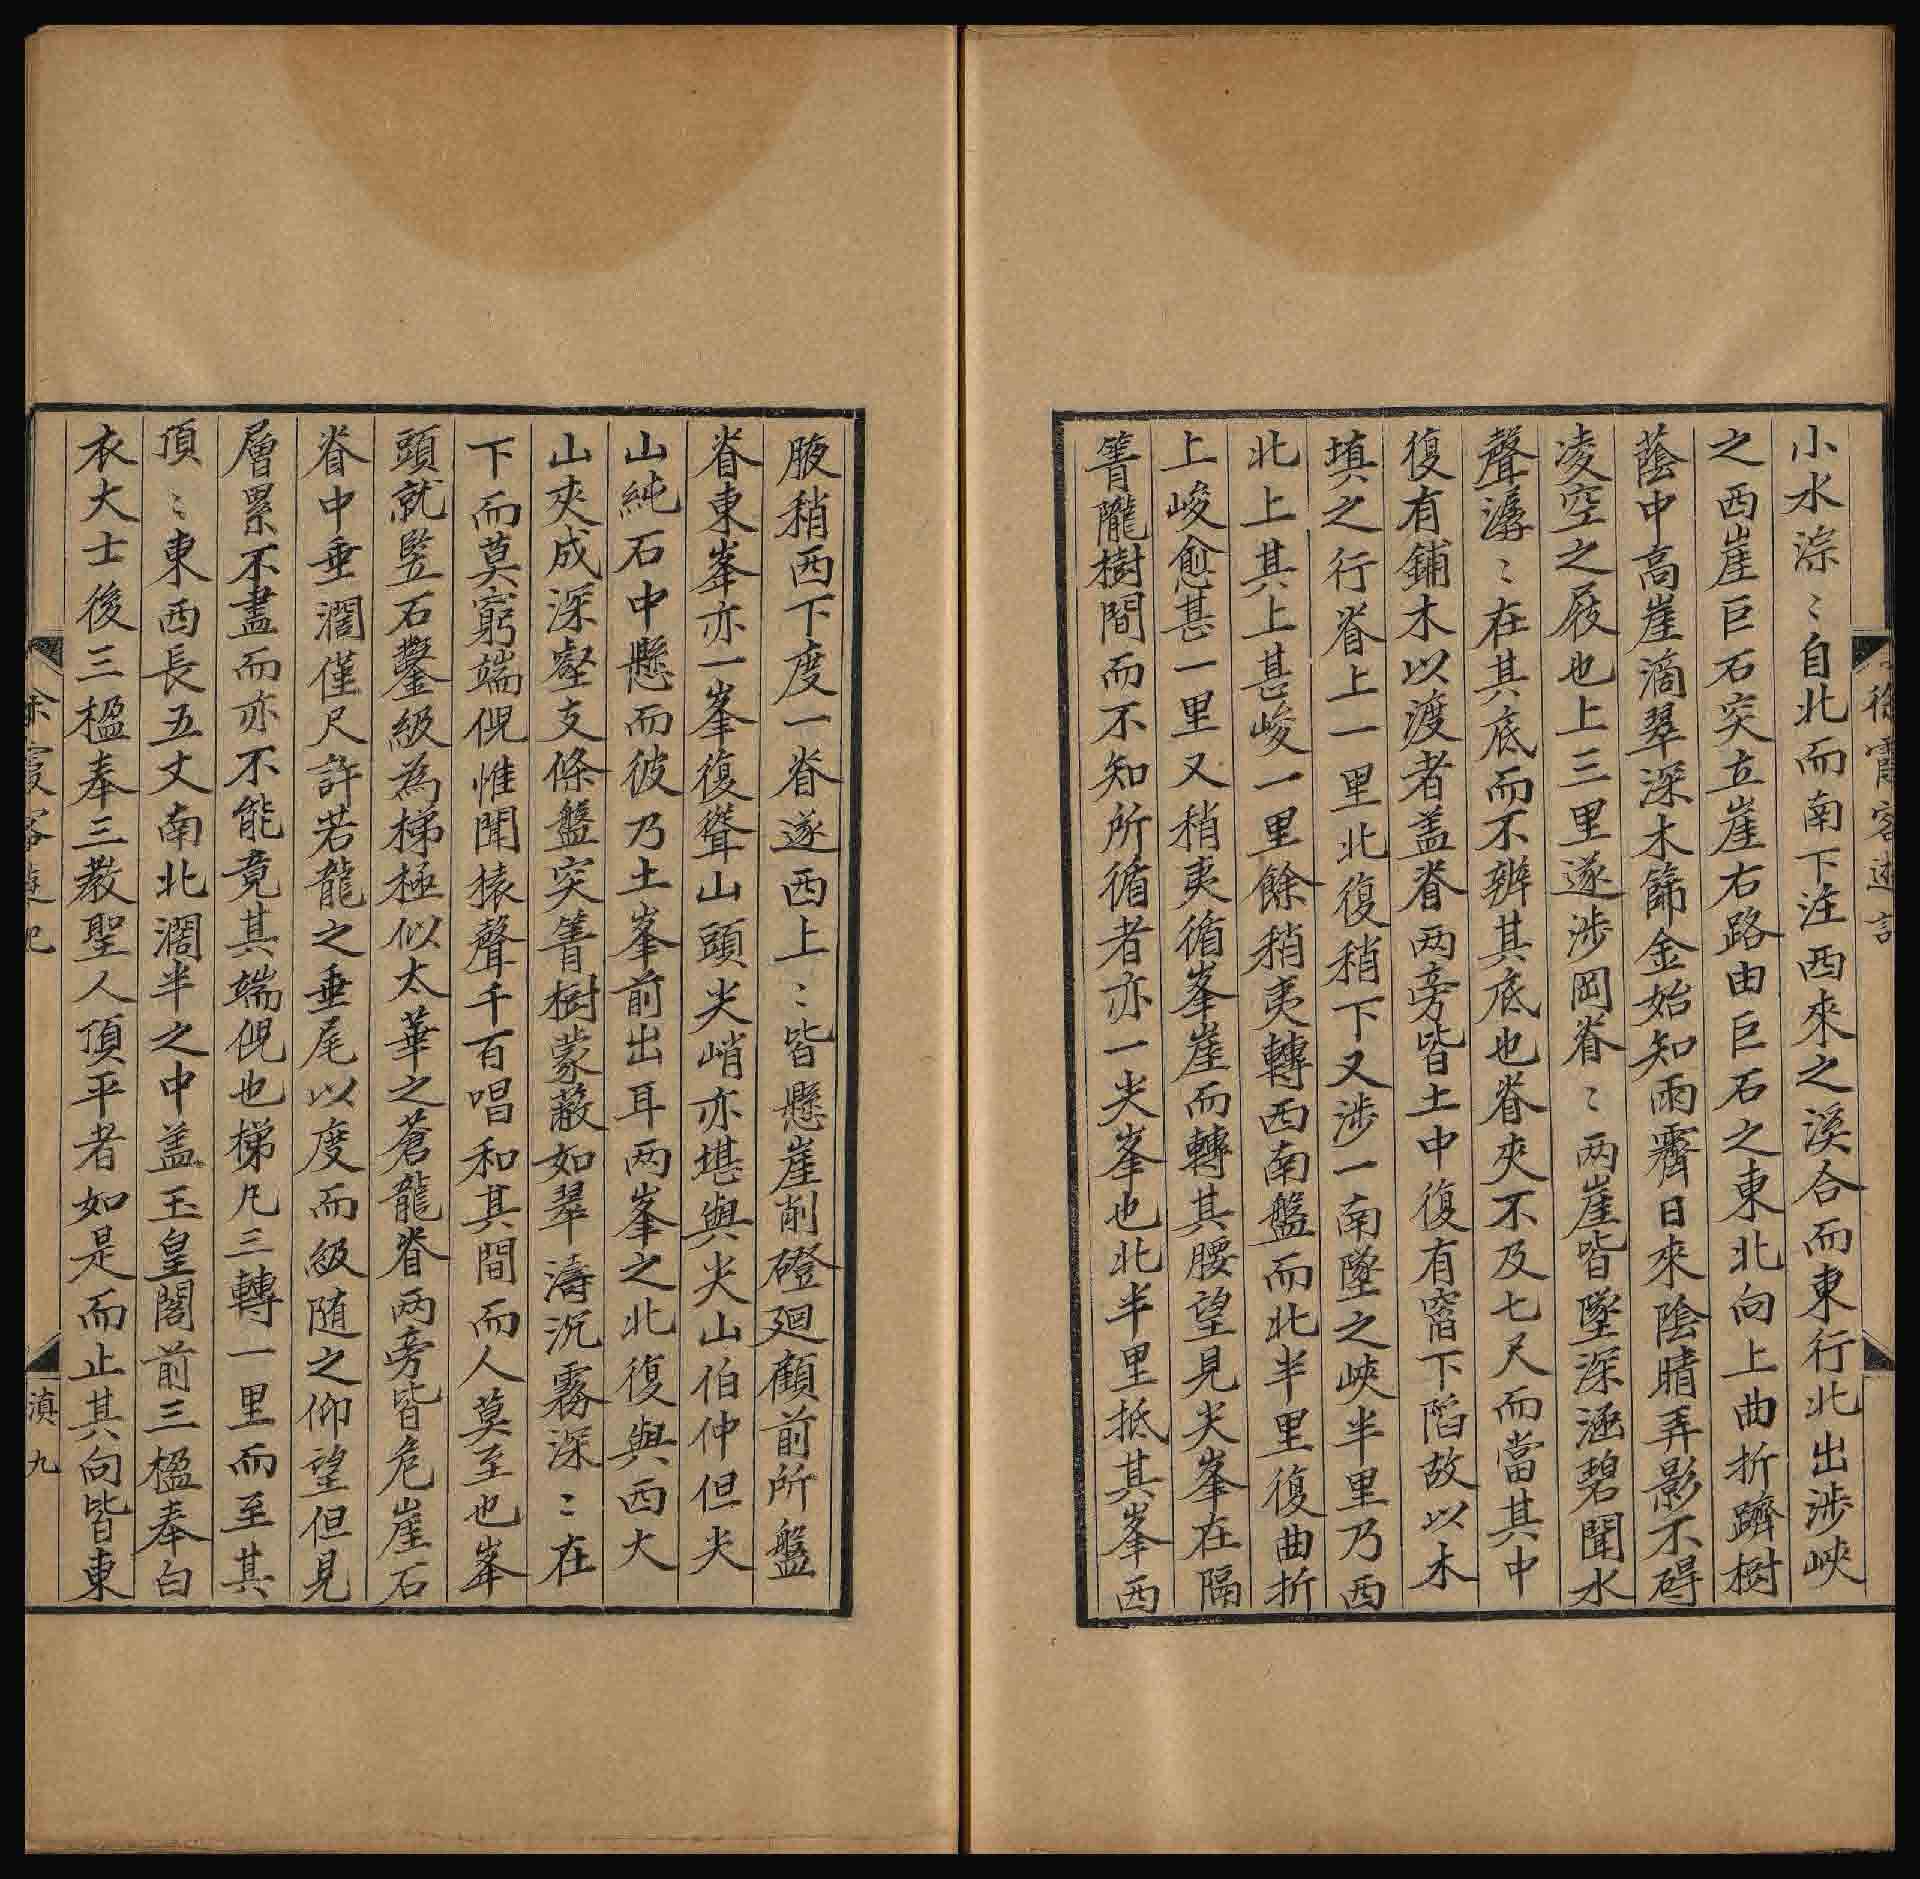 徐霞客遊記
小水淙〻自北而南下注西來之溪合而東行北出涉峽
之西崖巨石突立崖右路由巨石之東北向上曲折躋樹
蔭中高崖滴翠深木篩金始知雨霽日來陰晴弄影不碍
凌空之屐也上三里遂涉岡脊〻两崖皆墜深涵碧聞水
聲潺〻在其底而不辨其底也脊夾不及七尺而當其中
復有鋪木以渡者盖脊两旁皆土中復有窞下陷故以木
填之行脊上一里北復稍下又涉一南墜之峽半里乃西
北上其上甚峻一里餘稍夷轉西南盤而北半里復曲折
上峻愈甚一里又稍夷循峯崖而轉其腰望見尖峯在隔
箐隴樹間而不知所循者亦一尖峯也北半里抵其峯西
腋稍西下度一脊遂西上〻皆懸崖削磴廻顧前所盤
脊東峯亦一峯復聳山頭尖峭亦堪與尖山伯仲但尖
山純石中懸而彼乃土峯前出耳两峯之北復與西大
山夾成深壑支條盤突箐樹蒙蔽如翠濤沉霧深〻在
下而莫窮端倪惟聞猿聲千百唱和其間而人莫至也峯
頭就竪石鑿級為梯極似太華之蒼龍脊两旁皆危崖石
脊中垂濶僅尺許若龍之垂尾以度而級随之仰望但見
層累不盡而亦不能竟其端倪也梯凡三轉一里而至其
頂〻東西長五丈南北濶半之中盖玉皇閣前三楹奉白
衣大士後三楹奉三教聖人頂平者如是而止其向皆東
徐霞客遊記
滇九